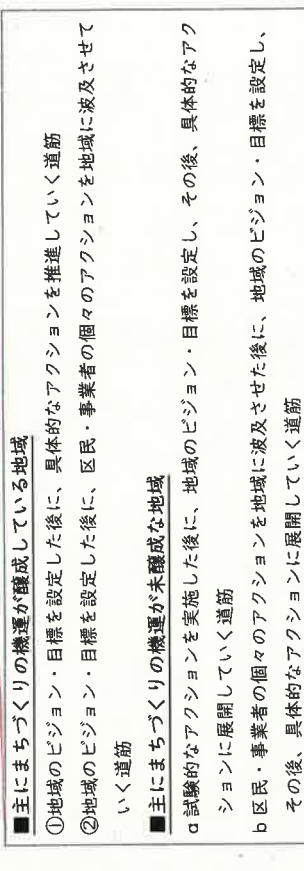 ■主にまちづくりの機運が醸成している地域
①地域のビジョン・目標を設定した後に、具体的なアクションを推進していく道筋
②地域のビジョン・目標を設定した後に、区民・事業者の個々のアクションを地域に波及させて
いく道筋
■主にまちづくりの機運が未醸成な地域
a 試験的なアクションを実施した後に、地域のビジョン・目標を設定し、その後、具体的なアク
ションに展開していく道筋
b 区民・事業者の個々のアクションを地域に波及させた後に、地域のビジョン・目標を設定し、
その後、具体的なアクションに展開していく道筋